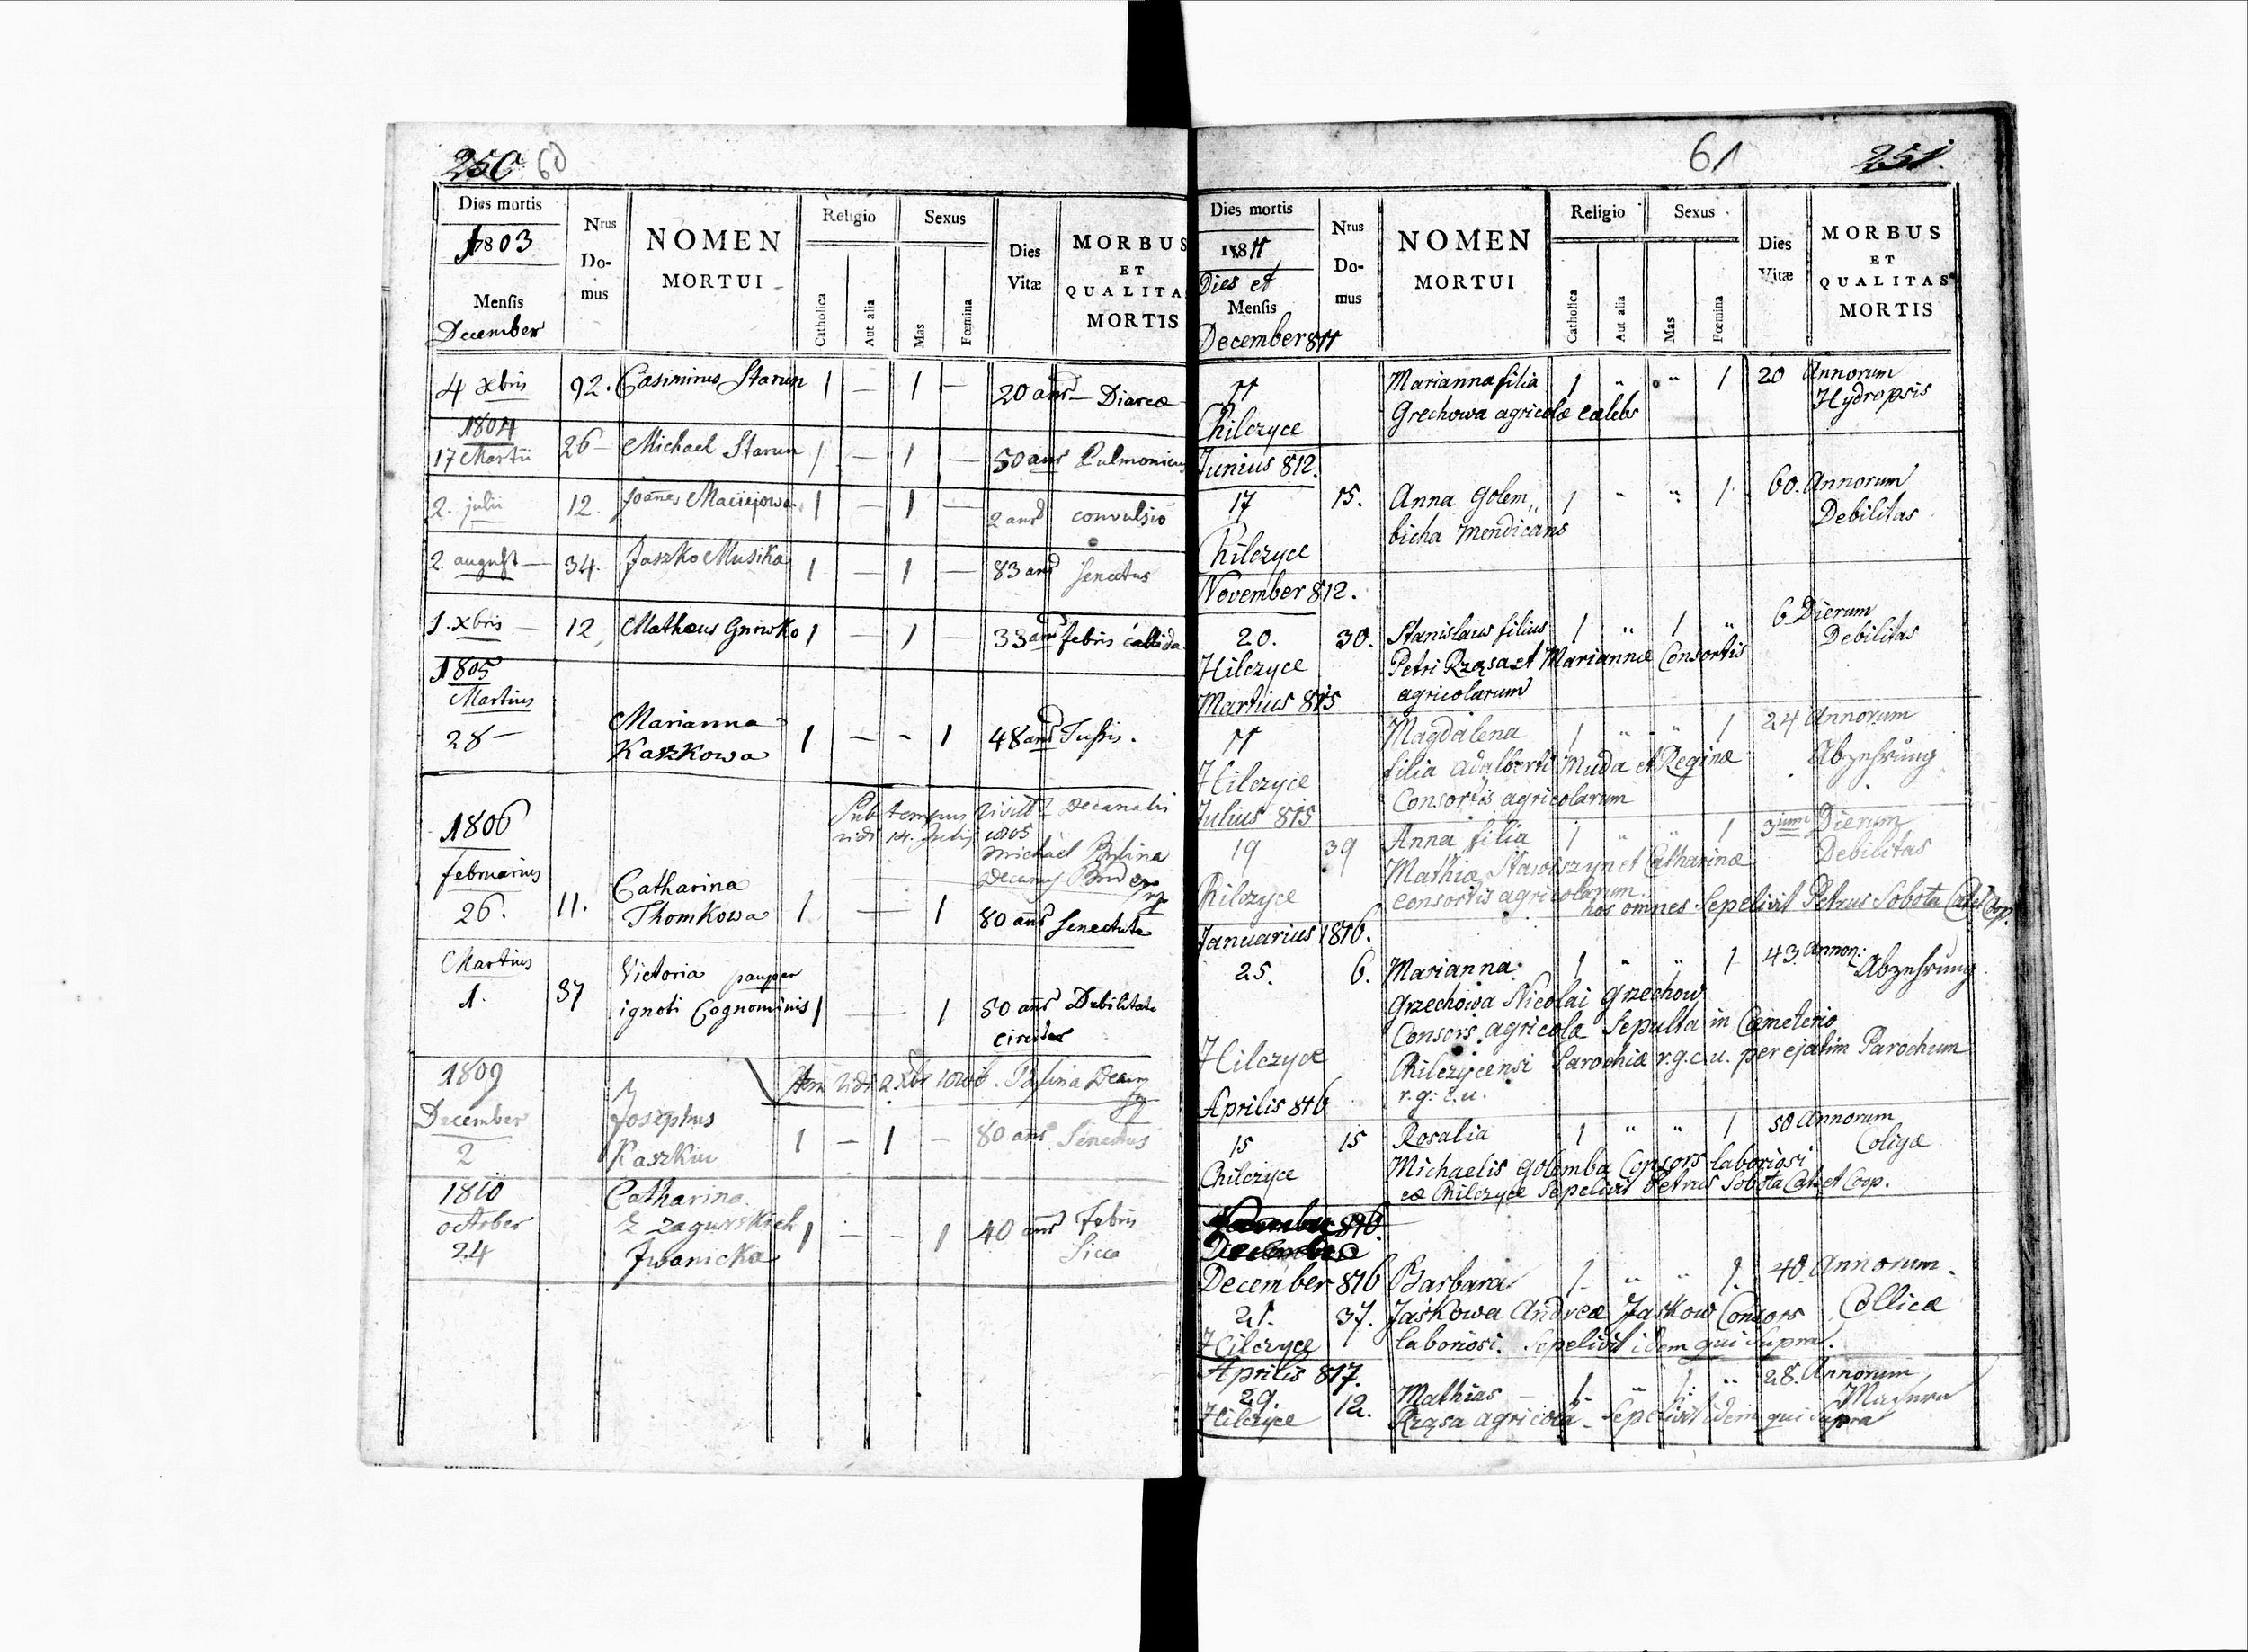 250 60
Dies mortis
1803
Mensis
December
Nrus Do-mus
NOMEN
MORTUI
Religio
Catholica
Aut alia
Sexus
Mas
Fœmina
Dies
Vitæ
MORBUS
ET
QUALITA
MORTIS
4 xbris 92. Casimirus Starun 1 — 1 — 20 ans — Diarea
1804
17 Martii 26 — Michael Starun 1 — 1 — 50 ans Pulmonicus
2. julii 12. Joanes Maciejowa 1 — 1 — 2 ans convulsio
2. august — 34. Jaszko Musika 1 — 1 — 83 ans Senectus
1. xbris — 12 Matheus Gniwko 1 — 1 — 33 ans febris callida
1805
Martius
28 — Marianna
Kaszkowa 1 — - 1 48 ans Tussis.
Sub tempus visitt Decanalis
vidi 14. Julij 1805
Michael
Decanus
1806
februarius
26. 11. Catharina
Thomkowa 1 — 1 80 ans Senectute
Martius
1. 37 Victoria pauper
ignoti Cognominis 1 — 1 50 ans Debilitate
circiter
vidi
1809
December
2 Josephus
Kaszkiw 1 — 1 — 80 ans Senectus
1810
october
24 Catharina
z zagurskich
Iwanicka 1 — - 1 40 ans Febris
Sicca
61 251.
Dies mortis
1811
Dies et
Mensis
December 811
Nrus Do-mus
NOMEN
MORTUI
Religio
Catholica
Aut alia
Sexus
Mas
Fœmina
Dies
Vitæ
MORBUS
ET
QUALITAS
MORTIS
11 Marianna filia 1 " " 1 20 Annorum
Chilczyce Grechowa agricolæ cælebs Hydropsis
Junius 812.
17 15. Anna Golem,, 1 " " 1 60. Annorum
Chilczyce bicha mendicans Debilitas
November 812.
20. 30. Stanislaus filius 1 " 1 " 6 Dierum
Hilczyce Petri Rząsa et Mariannæ Consortis Debilitas
agricolarum
Martius 815
11 Magdalena 1 " " 1 24. Annorum
Hilczyce filia Adalberti Muda et Reginæ Abzehrung
Consortis agricolarum
Julius 815
19 39 Anna filia 1 " " 1 Dierum
Chilczyce Mathiæ Stawiszyn et Catharinæ Debilitas
consortis agricolarum.
hos omnes Sepelivit Petrus Sobota Coop.
Januarius 1816.
25. 6. Marianna 1 " " 1 43. Annor: Abzehrung
Grzechowa Nicolai Grzechow
Consors agricola Sepulta in Cemeterio
Hilczyce Chilczycensi Parochiæ r.g.c.u. per ejatim Parochum
r.g.c.u.
Aprilis 816
15 15 Rosalia 1 " " 1 50 Annorum
Chilczyce Michaelis Golemba Consors laboriosi Colicæ
Chilczyce Sepelivit Petrus Sobota Cat et Coop.
December 816 Barbara 1 " " 1. 40. Annorum.
21. 37. Jaśkowa Andreæ Jaskow Consors Collicæ
Hilczyce laboriosi. Sepelivit idem qui Supra.
Aprilis 817.
29. 12. Mathias — 1 " 1 " 28. Annorum
Hilczyce Rząsa agricola — Sepelivit idem qui Supra